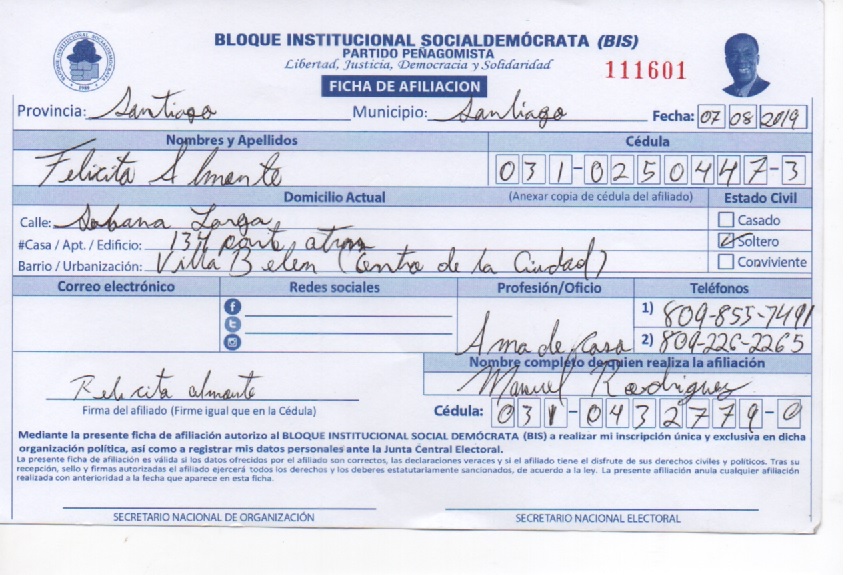 BLOQUE INSTITUCIONAL SOCIALDEMÓCRATA (BIS)
PARTIDO PEÑAGOMISTA
Libertad, Justicia, Democracia y Solidaridad
111601
FICHA DE AFILIACION
Provincia: Santiago Municipio: Santiago Fecha: 07 08 2019
Nombres y Apellidos Cédula
Felicita Almonte 031-0250447-3
Domicilio Actual (Anexar copia de cédula del afiliado) Estado Civil
Calle: Sabana Larga Casado
#Casa / Apt. / Edificio: 134 parte atras Soltero
Barrio / Urbanización: Villa Belen (Centro de la Ciudad) Conviviente
Correo electrónico Redes sociales Profesión/Oficio Teléfonos
1) 809-855-7491
Ama de Casa 2) 809-226-2265
Nombre completo de quien realiza la afiliación
Felicita almonte Manuel Rodriguez
Firma del afiliado (Firme igual que en la Cédula) Cédula: 031-0432779-0
Mediante la presente ficha de afiliación autorizo al BLOQUE INSTITUCIONAL SOCIAL DEMÓCRATA (BIS) a realizar mi inscripción única y exclusiva en dicha
organización política, así como a registrar mis datos personales ante la Junta Central Electoral.
La presente ficha de afiliación es válida si los datos ofrecidos por el afiliado son correctos, las declaraciones veraces y si el afiliado tiene el disfrute de sus derechos civiles y políticos. Tras su
recepción, sello y firmas autorizadas el afiliado ejercerá todos los derechos y los deberes estatutariamente sancionados, de acuerdo a la ley. La presente afiliación anula cualquier afiliación
realizada con anterioridad a la fecha que aparece en esta ficha.
SECRETARIO NACIONAL DE ORGANIZACIÓN SECRETARIO NACIONAL ELECTORAL